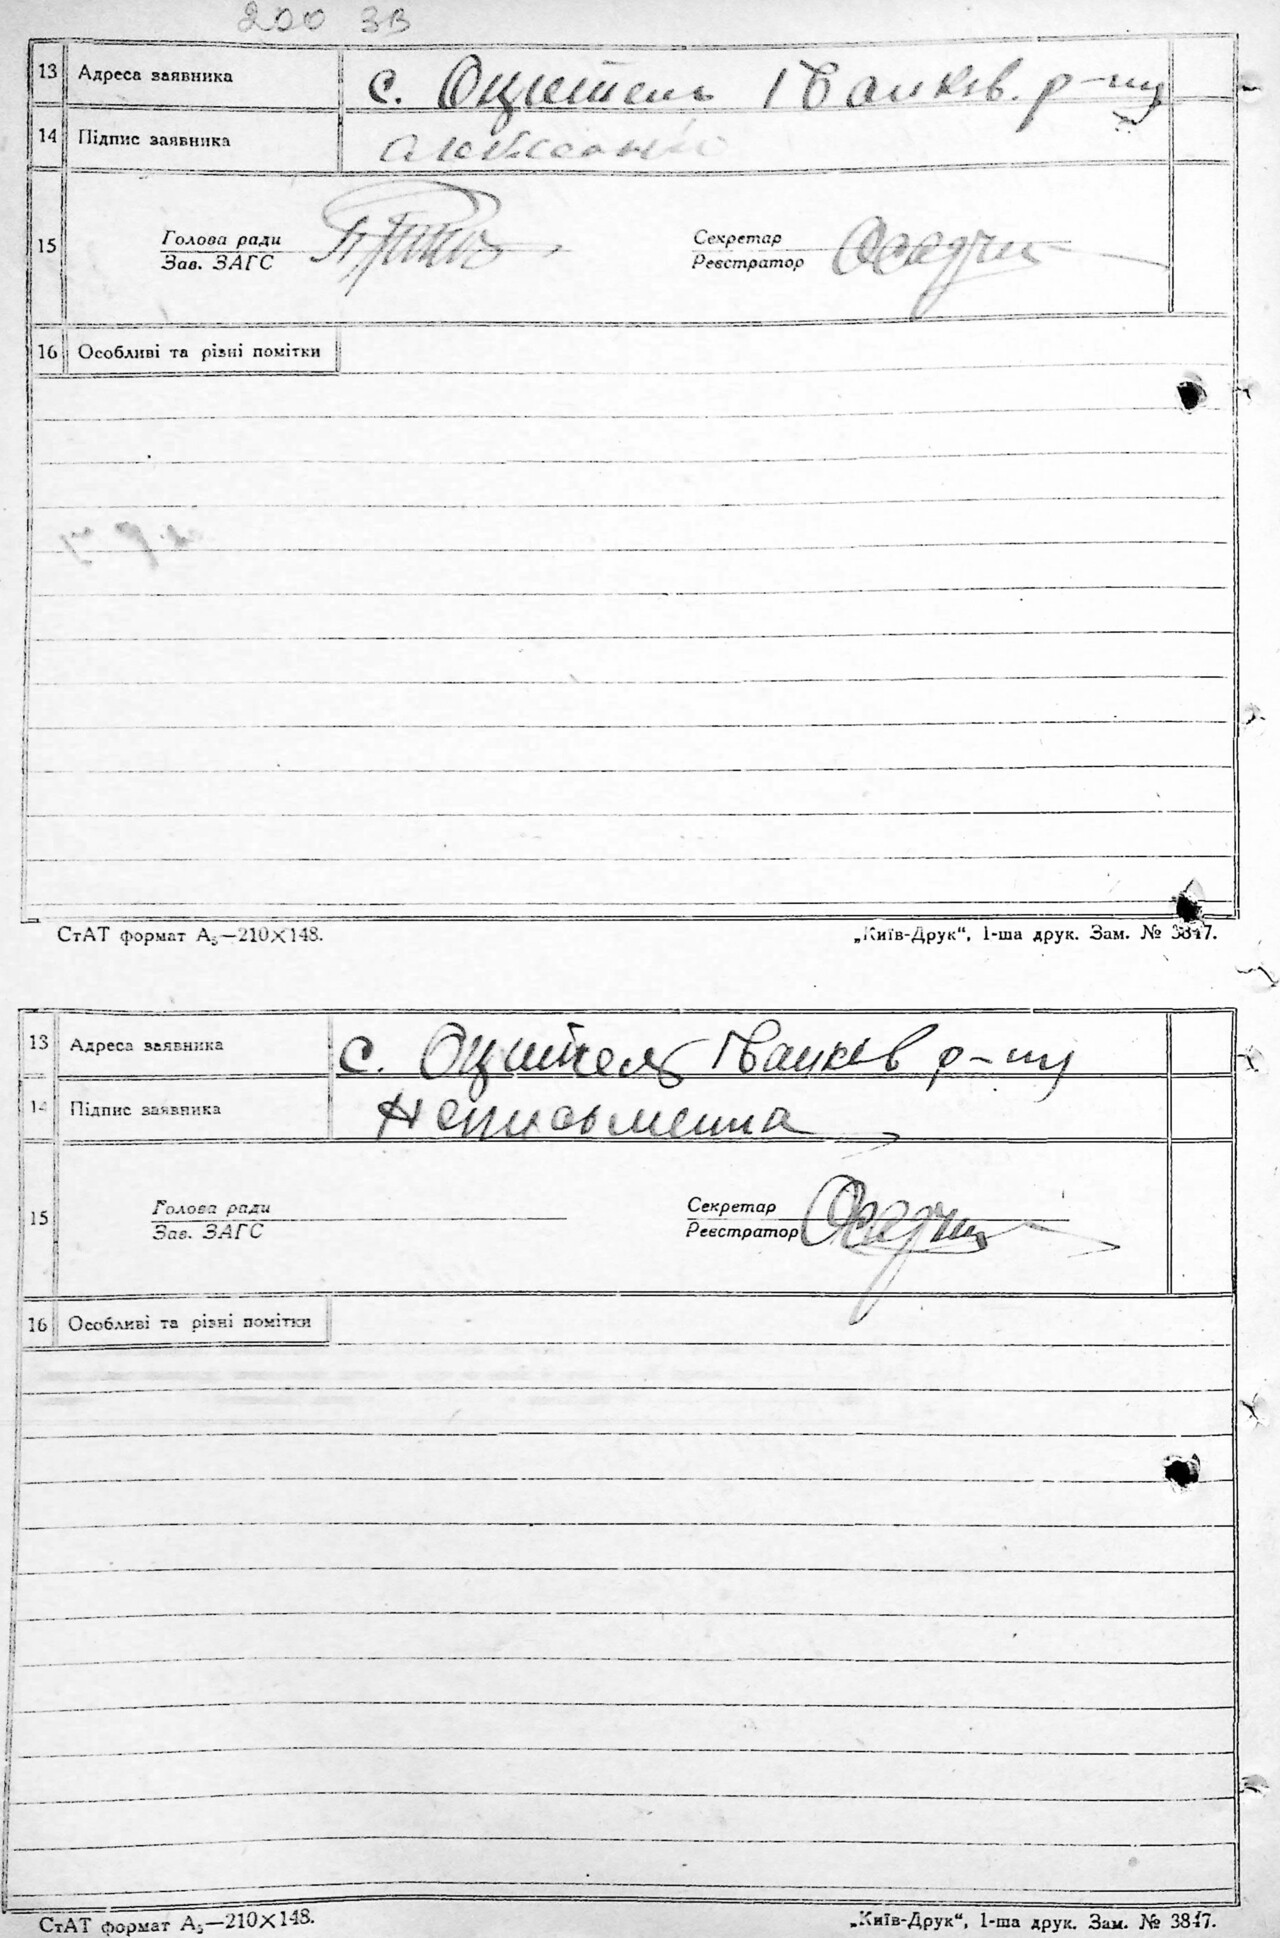 200 зв
13 Адреса заявника с. Оцитель Іванків. р-ну
14 Підпис заявника
15 Голова ради Секретар
Зав. ЗАГС Реєстратор Осадчий
16 Особливі та різні помітки
СтАТ формат А₅—210×148. „Київ-Друк“, 1-ша друк. Зам. № 3847.
13 Адреса заявника с. Оцитель Іванків р-ну
14 Підпис заявника Неписьменна
15 Голова ради Секретар
Зав. ЗАГС Реєстратор Осадчий
16 Особливі та різні помітки
СтАТ формат А₅—210×148. „Київ-Друк“, 1-ша друк. Зам. № 3847.